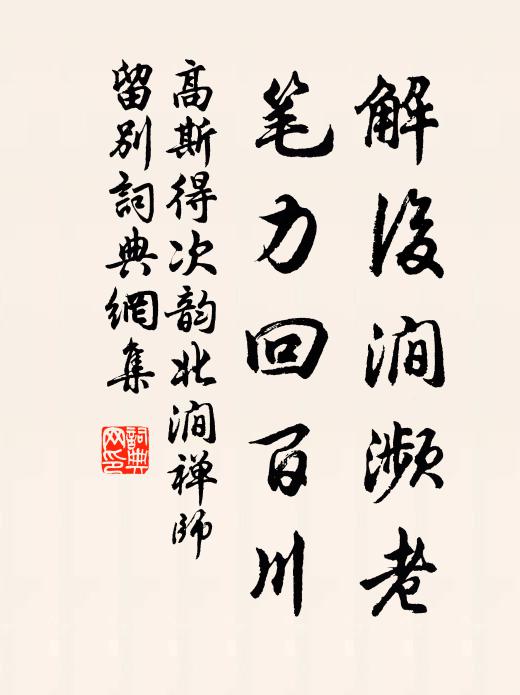 解后涧濒老
笔力回百川
高斯得次韵北涧禅师
留别詞典網集
詞典网印